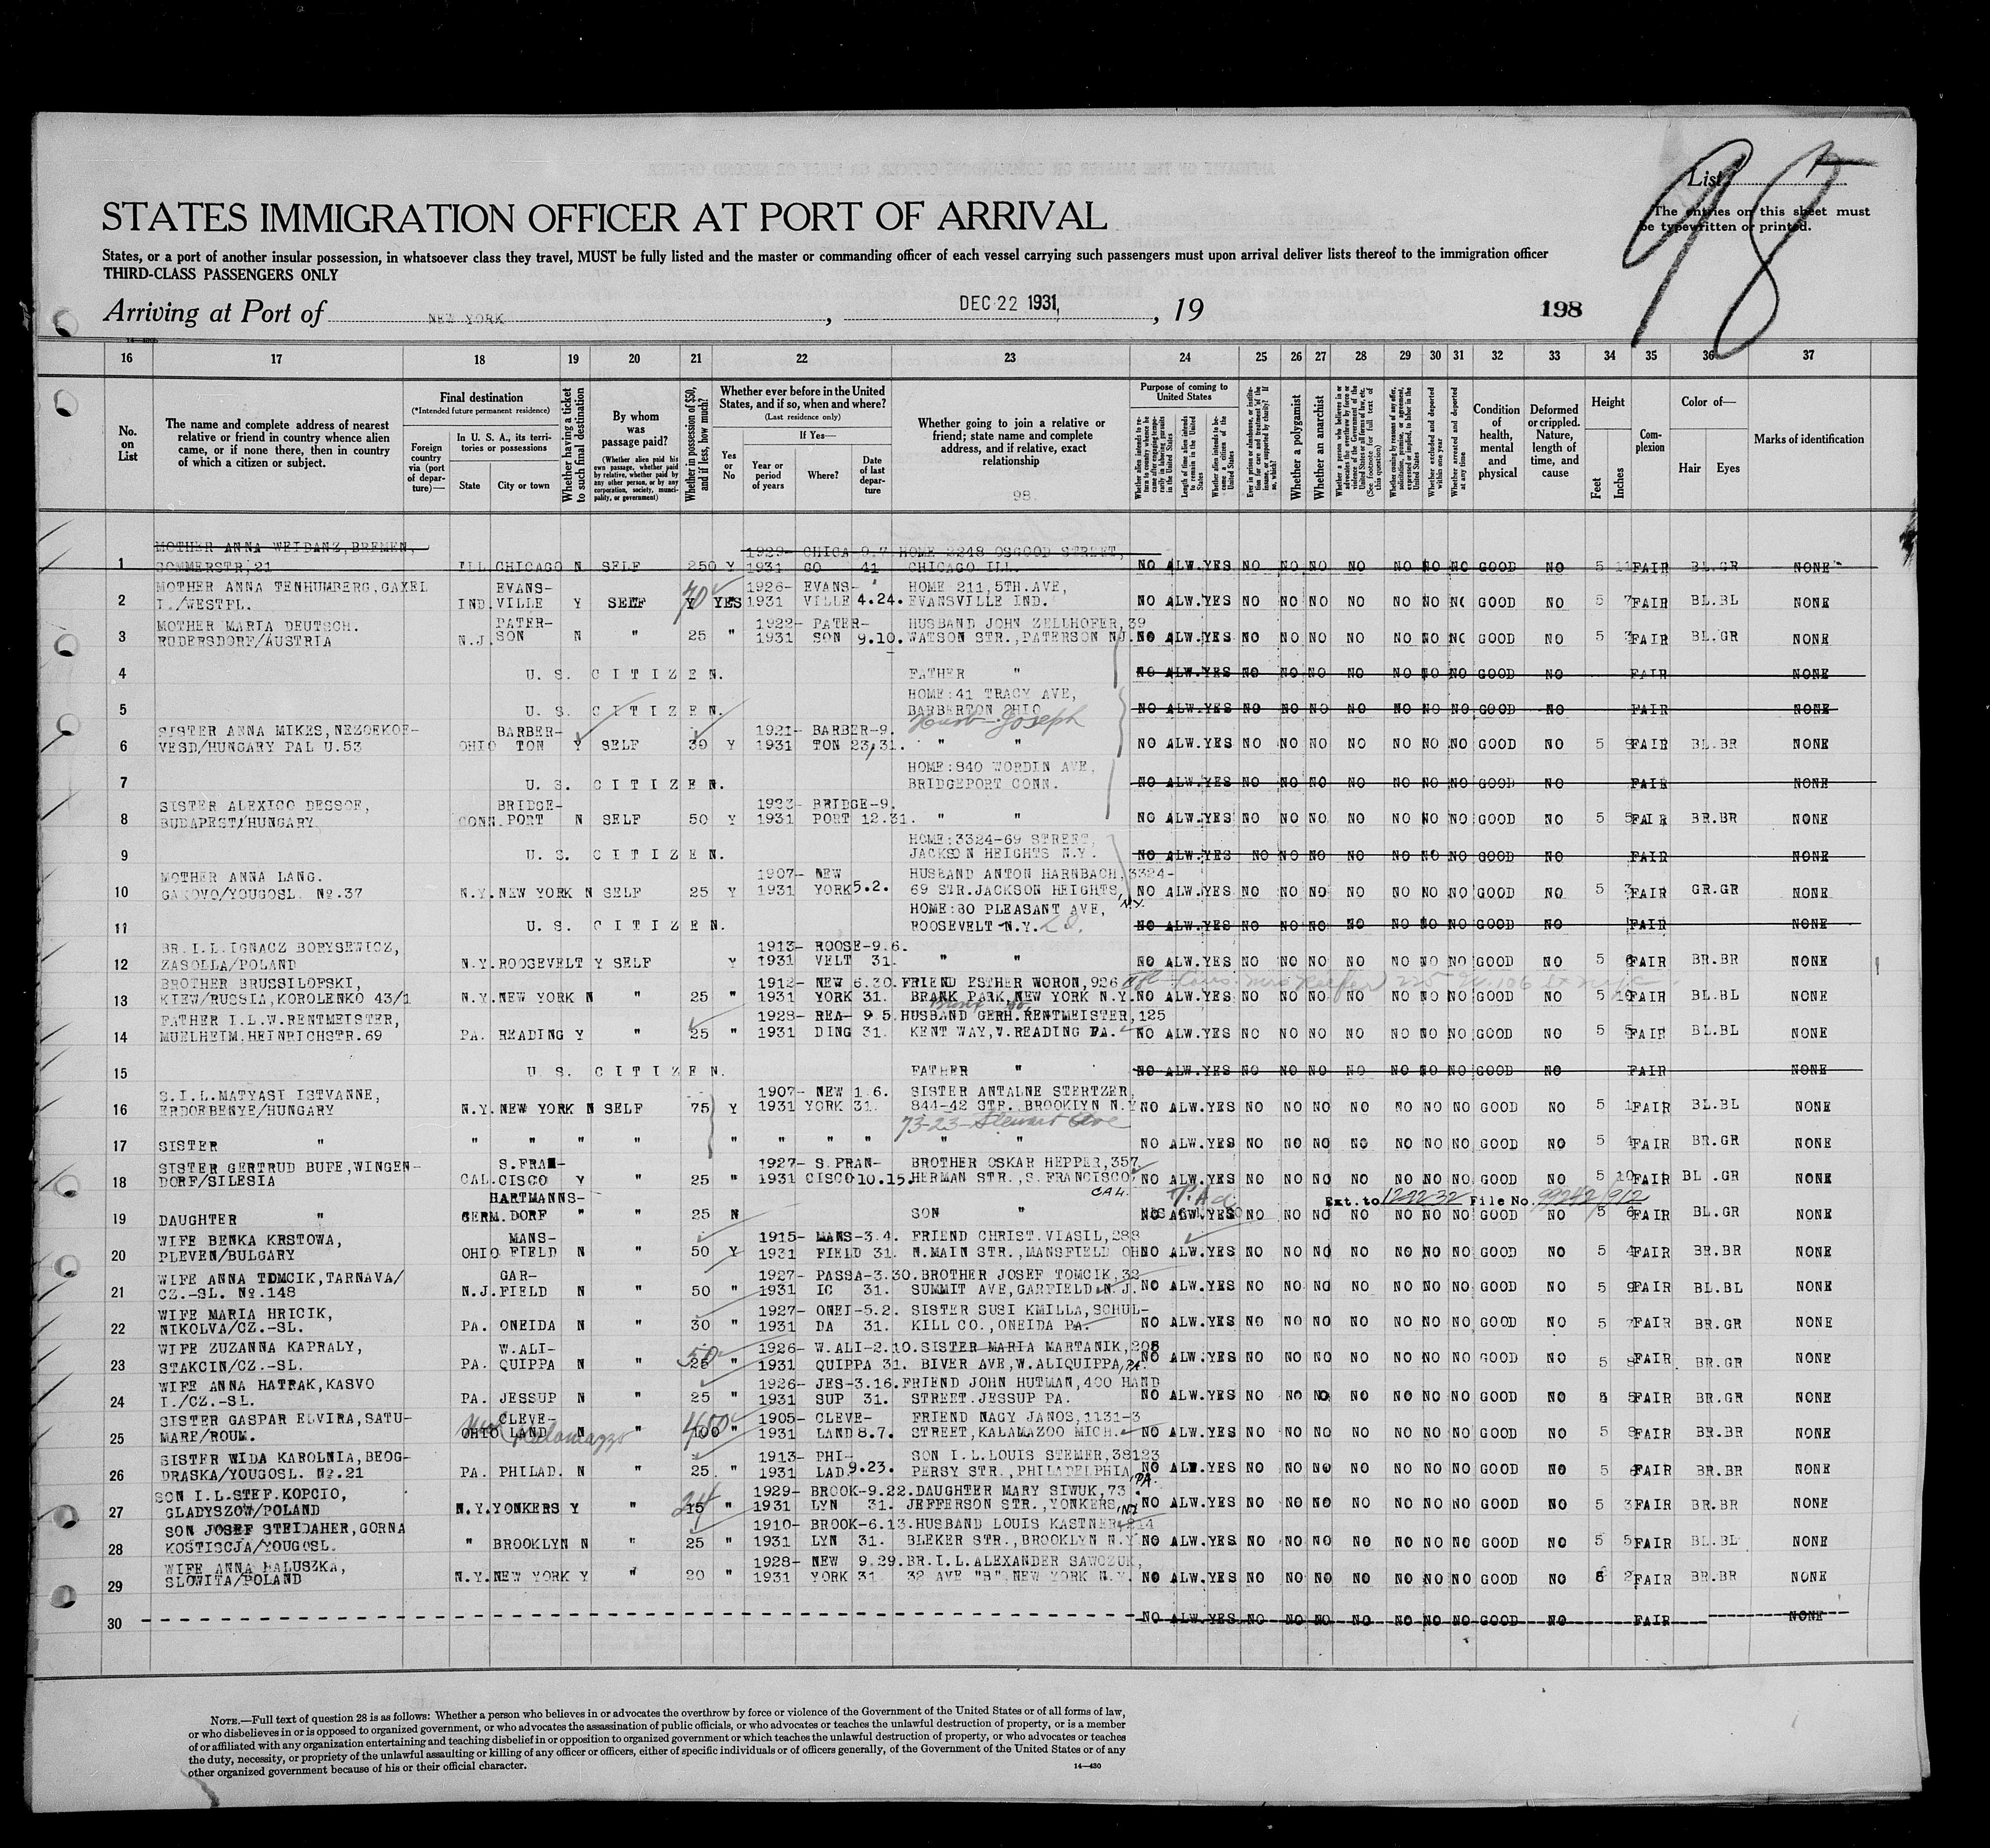 98
List
The entries on this sheet must
be typewritten or printed.
STATES IMMIGRATION OFFICER AT PORT OF ARRIVAL
States, or a port of another insular possession, in whatsoever class they travel, MUST be fully listed and the master or commanding officer of each vessel carrying such passengers must upon arrival deliver lists thereof to the immigration officer
THIRD-CLASS PASSENGERS ONLY
Arriving at Port of NEW YORK, DEC 22 1931, , 19 198
16 17 18 19 20 21 22 23 24 25 26 27 28 29 30 31 32 33 34 35 36 37
No. on List
The name and complete address of nearest relative or friend in country whence alien came, or if none there, then in country of which a citizen or subject.
Final destination
(*Intended future permanent residence)
Foreign country via (port of departure)—
In U. S. A., its territories or possessions
State City or town
Whether having a ticket to such final destination
By whom was passage paid?
(Whether alien paid his own passage, whether paid by relative, whether paid by any other person, or by any corporation, society, municipality, or government)
Whether in possession of $50, and if less, how much?
Whether ever before in the United States, and if so, when and where?
(Last residence only)
Yes or No
If Yes—
Year or period of years Where? Date of last departure
Whether going to join a relative or friend; state name and complete address, and if relative, exact relationship
98
Purpose of coming to United States
Length of time alien intends to remain in the United States
Whether alien intends to become a citizen of the United States
Whether a polygamist
Whether an anarchist
Condition of health, mental and physical
Deformed or crippled. Nature, length of time, and cause
Height
Feet Inches
Complexion
Color of—
Hair Eyes
Marks of identification
MOTHER ANNA WEIDANZ, BREMEN, 1929- CHICA 9.7 HOME 2248 OSGOOD STREET,
1 SOMMERSTR,21 ILL CHICAGO N SELF 250 Y 1931 GO 41 CHICAGO ILL. NO ALW. YES NO NO NO NO NO NO NO GOOD NO 5 11 FAIR BL.GR NONE
MOTHER ANNA TENHUMBERG, GAXEL EVANS- 1926- EVANS- HOME 211,5TH.AVE,
2 I./WESTFL. IND. VILLE Y SELF Y YES 1931 VILLE 4.24. EVANSVILLE IND. NO ALW. YES NO NO NO NO NO NO NO GOOD NO 5 7 FAIR BL.BL NONE
MOTHER MARIA DEUTSCH. PATER- 1922- PATER- HUSBAND JOHN ZELLHOFER,39
3 RUDERSDORF/AUSTRIA N.J. SON N " 25 " 1931 SON 9.10. WATSON STR., PATERSON N.J. NO ALW. YES NO NO NO NO NO NO NO GOOD NO 5 3 FAIR BL.GR NONE
4 U. S. CITIZEN. FATHER " NO ALW. YES NO NO NO NO NO NO NO GOOD NO FAIR NONE
HOME:41 TRACY AVE,
5 U. S. CITIZEN. BARBERTON OHIO NO ALW. YES NO NO NO NO NO NO NO GOOD NO FAIR NONE
Husb-Joseph
SISTER ANNA MIKES, NEZOEKOE- BARBER- 1921- BARBER-9.
6 VESD/HUNGARY PAL U.53 OHIO TON Y SELF 30 Y 1931 TON 23,31. " " NO ALW. YES NO NO NO NO NO NO NO GOOD NO 5 FAIR BL.BR NONE
HOME:840 WORDIN AVE,
7 U. S. CITIZEN. BRIDGEPORT CONN. NO ALW. YES NO NO NO NO NO NO NO GOOD NO FAIR NONE
SISTER ALEXICO DESSOE, BRIDGE- 1923- BRIDGE-9.
8 BUDAPEST/HUNGARY CONN. PORT N SELF 50 Y 1931 PORT 12.31. " " NO ALW. YES NO NO NO NO NO NO NO GOOD NO 5 5 FAIR BR.BR NONE
HOME:3324-69 STREET,
9 U. S. CITIZEN. JACKSON HEIGHTS N.Y. NO ALW. YES NO NO NO NO NO NO NO GOOD NO FAIR NONE
MOTHER ANNA LANG. 1907- NEW HUSBAND ANTON HARNBACH,3324-
10 GAKOVO/YOUGOSL. No.37 N.Y. NEW YORK N SELF 25 Y 1931 YORK 5.2. 69 STR. JACKSON HEIGHTS, N.Y. NO ALW. YES NO NO NO NO NO NO NO GOOD NO 5 3 FAIR GR.GR NONE
HOME:80 PLEASANT AVE,
11 U. S. CITIZEN. ROOSEVELT N.Y. NO ALW. YES NO NO NO NO NO NO NO GOOD NO FAIR NONE
BR.I.L.IGNACZ BORYSEWICZ, 1913- ROOSE-9.6.
12 ZASOLLA/POLAND N.Y. ROOSEVELT Y SELF Y 1931 VELT 31. " " NO ALW. YES NO NO NO NO NO NO NO GOOD NO 5 6 FAIR BR.BR NONE
BROTHER BRUSSILOFSKI, 1912- NEW 6.30. FRIEND ESTHER WORON,926
13 KIEW/RUSSIA, KOROLENKO 43/1 N.Y. NEW YORK N " 25 " 1931 YORK 31. BRANK PARK, NEW YORK N.Y. NO ALW. YES NO NO NO NO NO NO NO GOOD NO 5 10 FAIR BL.BL NONE
FATHER I.L.W.RENTMEISTER, 1928- REA- 9 5. HUSBAND GERH.RENTMEISTER,125
14 MUELHEIM, HEINRICHSTR.69 PA. READING Y " 25 " 1931 DING 31. KENT WAY, W.READING PA. NO ALW. YES NO NO NO NO NO NO NO GOOD NO 5 5 FAIR BL.BL NONE
15 U. S. CITIZEN. FATHER " NO ALW. YES NO NO NO NO NO NO NO GOOD NO FAIR NONE
S.I.L.MATYASI ISTVANNE, 1907- NEW 1.6. SISTER ANTALNE STERTZER,
16 ERDOEBENYE/HUNGARY N.Y. NEW YORK N SELF 75 Y 1931 YORK 31. 844-42 STR. BROOKLYN N.Y. NO ALW. YES NO NO NO NO NO NO NO GOOD NO 5 1 FAIR BL.BL NONE
73-23-Stewart Ave
17 SISTER " " " " " " " " " " " NO ALW. YES NO NO NO NO NO NO NO GOOD NO 5 4 FAIR BR.GR NONE
SISTER GERTRUD BUFE, WINGEN- S.FRAN- 1927- S.FRAN- BROTHER OSKAR HEPPER,357
18 DORF/SILESIA CAL. CISCO Y " 25 " 1931 CISCO 10.15. HERMAN STR., S. FRANCISCO CAL. NO ALW. YES NO NO NO NO NO NO NO GOOD NO 5 10 FAIR BL.GR NONE
HARTMANNS- Ext. to 12-22-32 File No. 99252/912
19 DAUGHTER " GERM. DORF " " 25 N SON " ALW. YES NO NO NO NO NO NO NO GOOD NO 5 6 FAIR BL.GR NONE
WIFE BENKA KRSTOWA, MANS- 1915- MANS-3.4. FRIEND CHRIST.VIASIL,288
20 PLEVEN/BULGARY OHIO FIELD N " 50 Y 1931 FIELD 31. N.MAIN STR., MANSFIELD OH NO ALW. YES NO NO NO NO NO NO NO GOOD NO 5 4 FAIR BR.BR NONE
WIFE ANNA TOMCIK, TARNAVA/ GAR- 1927- PASSA-3.30. BROTHER JOSEF TOMCIK,32
21 CZ.-SL. No.148 N.J. FIELD N " 50 " 1931 IC 31. SUMMIT AVE, GARFIELD N.J. NO ALW. YES NO NO NO NO NO NO NO GOOD NO 5 9 FAIR BL.BL NONE
WIFE MARIA HRICIK, 1927- ONEI-5.2. SISTER SUSI KMILLA, SCHUL-
22 NIKOLVA/CZ.-SL. PA. ONEIDA N " 30 " 1931 DA 31. KILL CO., ONEIDA PA. NO ALW. YES NO NO NO NO NO NO NO GOOD NO 5 7 FAIR BR.GR NONE
WIFE ZUZANNA KAPRALY, W.ALI- 50 1926- W.ALI-2.10. SISTER MARIA MARTANIK,208
23 STAKCIN/CZ.-SL. PA. QUIPPA N " 25 " 1931 QUIPPA 31. BIVER AVE, W.ALIQUIPPA, PA. NO ALW. YES NO NO NO NO NO NO NO GOOD NO 5 8 FAIR BR.GR NONE
WIFE ANNA HATRAK, KASVO 1926- JES-3.16. FRIEND JOHN HUTMAN,400 HAND
24 I./CZ.-SL. PA. JESSUP N " 25 " 1931 SUP 31. STREET.JESSUP PA. NO ALW. YES NO NO NO NO NO NO NO GOOD NO 5 8 FAIR BR.GR NONE
SISTER GASPAR ELVIRA, SATU- CLEVE- 400 1905- CLEVE- FRIEND NAGY JANOS,1131-3
25 MARE/ROUM. OHIO LAND N " 100 " 1931 LAND 8.7. STREET, KALAMAZOO MICH. NO ALW. YES NO NO NO NO NO NO NO GOOD NO 5 8 FAIR BR.BR NONE
SISTER WIDA KAROLNIA, BEOG- 1913- PHI- SON I.L.LOUIS STEMER,38123
26 DRASKA/YOUGOSL. No.21 PA. PHILAD. N " 25 " 1931 LAD. 9.23. PERSY STR., PHILADELPHIA, PA. NO ALW. YES NO NO NO NO NO NO NO GOOD NO 5 6 FAIR BR.BR NONE
SON I.L.STEF.KOPCIO, 24 1929- BROOK-9.22. DAUGHTER MARY SIWUK,73
27 GLADYSZOW/POLAND N.Y. YONKERS Y " 15 " 1931 LYN 31. JEFFERSON STR., YONKERS, NY NO ALW. YES NO NO NO NO NO NO NO GOOD NO 5 3 FAIR BR.BR NONE
SON JOSEF STEIDAHER, GORNA 1910- BROOK-6.13. HUSBAND LOUIS KASTNER 214
28 KOSTISCJA/YOUGOSL. " BROOKLYN N " 25 " 1931 LYN 31. BLEKER STR., BROOKLYN N.Y NO ALW. YES NO NO NO NO NO NO NO GOOD NO 5 5 FAIR BL.BL NONE
WIFE ANNA HALUSZKA, 1928- NEW 9.29. BR.I.L.ALEXANDER SAWCZUK,
29 SLOWITA/POLAND N.Y. NEW YORK Y " 20 " 1931 YORK 31. 32 AVE "B" NEW YORK N.Y. NO ALW. YES NO NO NO NO NO NO NO GOOD NO 2 FAIR BR.BR NONE
30 NO ALW. YES NO NO NO NO NO NO NO GOOD NO FAIR NONE
NOTE.—Full text of question 28 is as follows: Whether a person who believes in or advocates the overthrow by force or violence of the Government of the United States or of all forms of law,
or who disbelieves in or is opposed to organized government, or who advocates the assassination of public officials, or who advocates or teaches the unlawful destruction of property, or is a member
of or affiliated with any organization entertaining and teaching disbelief in or opposition to organized government or which teaches the unlawful destruction of property, or who advocates or teaches
the duty, necessity, or propriety of the unlawful assaulting or killing of any officer or officers, either of specific individuals or of officers generally, of the Government of the United States or of any
other organized government because of his or their official character.
14—430